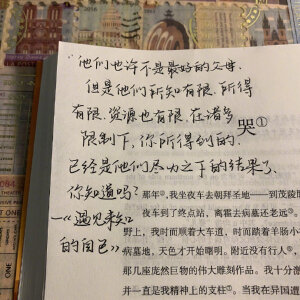 "他们也许不是最好的父母.
但是他们所知有限.所得
有限.资源也有限.在诸多
限制下，你所得到的.
已经是他们尽力之下的结果了.
你知道吗?
—《遇见未知
的自己》
哭①
那年②，我坐夜车去朝拜圣地——到茂陵
夜车到了终点站，离霍去病墓还老远③。
野上，我时而顺着大车道，时而踏着羊肠小
病墓地，天色才开始曙明。附近没有行人④，
那几座庞然巨物的伟大雕刻作品。我十分激
并一直是我精神上的支柱⑤。当我在异国遭
2016